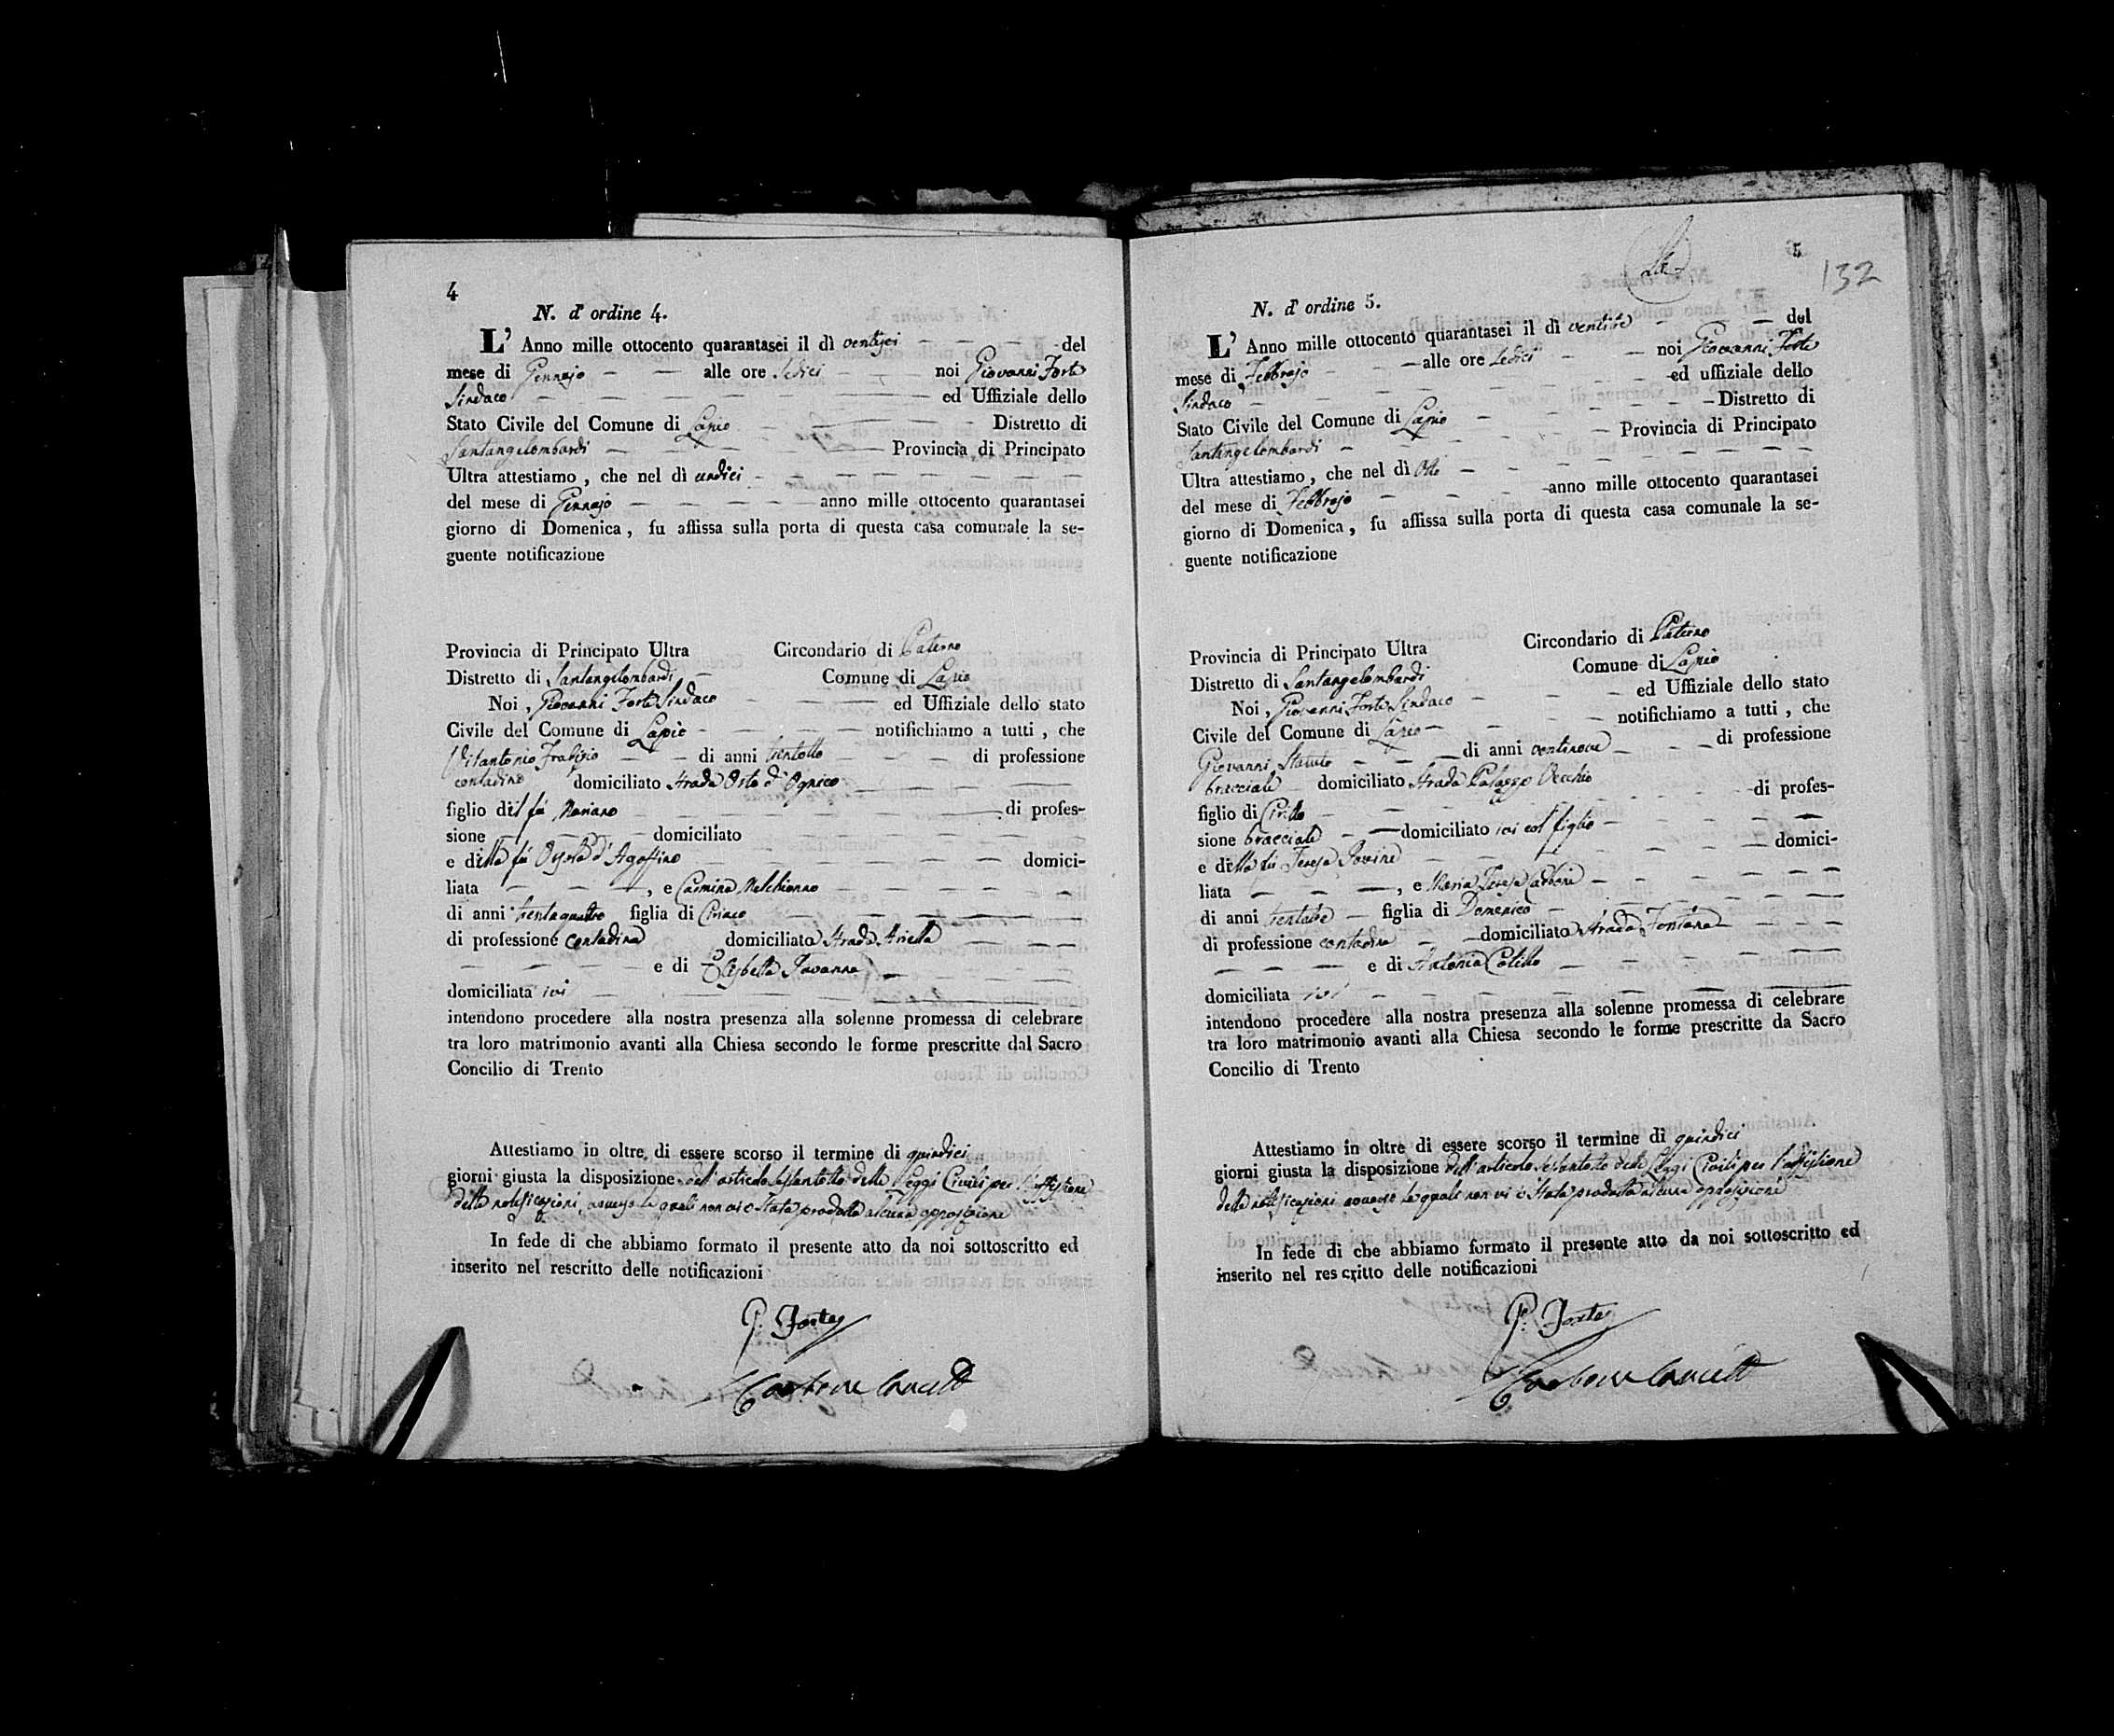 4
N. d' ordine 4.
L' Anno mille ottocento quarantasei il dì ventisei del
mese di Gennajo alle ore sedici noi Giovanni Forte
Sindaco ed Uffiziale dello
Stato Civile del Comune di Lapio Distretto di
Santangelombardi Provincia di Principato
Ultra attestiamo, che nel dì undici
del mese di Gennajo anno mille ottocento quarantasei
giorno di Domenica, fu affissa sulla porta di questa casa comunale la se-
guente notificazione
Provincia di Principato Ultra Circondario di Paterno
Distretto di Santangelombardi Comune di Lapio
Noi, Giovanni Forte Sindaco ed Uffiziale dello stato
Civile del Comune di Lapio notifichiamo a tutti, che
Vitantonio di anni trentotto di professione
contadino domiciliato Strada Orto d'
figlio del fu Mariano di profes-
sione domiciliato
e della fu d'Agostino domici-
liata , e Carmina Melchionno
di anni trentaquattro figlia di Ciriaco
di professione contadina domiciliata Strada Ariella
e di Elisabetta
domiciliata ivi
intendono procedere alla nostra presenza alla solenne promessa di celebrare
tra loro matrimonio avanti alla Chiesa secondo le forme prescritte dal Sacro
Concilio di Trento
Attestiamo in oltre di essere scorso il termine di quindici
giorni giusta la disposizione dell'articolo sessantotto delle Leggi Civili per l'affissione
delle notificazioni, avverso le quali non vi è stata prodotta alcuna opposizione
In fede di che abbiamo formato il presente atto da noi sottoscritto ed
inserito nel rescritto delle notificazioni
G. Forte
Carbone
5
132
N. d' ordine 5.
L' Anno mille ottocento quarantasei il dì ventitre del
mese di Febbrajo alle ore sedici noi Giovanni Forte
Sindaco ed uffiziale dello
Stato Civile del Comune di Lapio Distretto di
Santangelombardi Provincia di Principato
Ultra attestiamo, che nel dì Otto
del mese di Febbrajo anno mille ottocento quarantasei
giorno di Domenica, fu affissa sulla porta di questa casa comunale la se-
guente notificazione
Provincia di Principato Ultra Circondario di Paterno
Distretto di Santangelombardi Comune di Lapio
Noi, Giovanni Forte Sindaco ed Uffiziale dello stato
Civile del Comune di Lapio notifichiamo a tutti, che
Giovanni Statuto di anni ventinove di professione
bracciale domiciliato Strada Palazzo Vecchio
figlio di Cirillo di profes-
sione bracciale domiciliato ivi col figlio
e della fu Teresa Iovine domici-
liata , e Maria Teresa Carbone
di anni trentatre figlia di Domenico
di professione contadina domiciliata Strada Fontana
e di Antonia
domiciliata ivi
intendono procedere alla nostra presenza alla solenne promessa di celebrare
tra loro matrimonio avanti alla Chiesa secondo le forme prescritte da Sacro
Concilio di Trento
Attestiamo in oltre di essere scorso il termine di quindici
giorni giusta la disposizione dell'articolo sessantotto delle Leggi Civili per l'affissione
delle notificazioni avverso le quali non vi è stata prodotta alcuna opposizione
In fede di che abbiamo formato il presente atto da noi sottoscritto ed
inserito nel rescritto delle notificazioni
G. Forte
Carbone